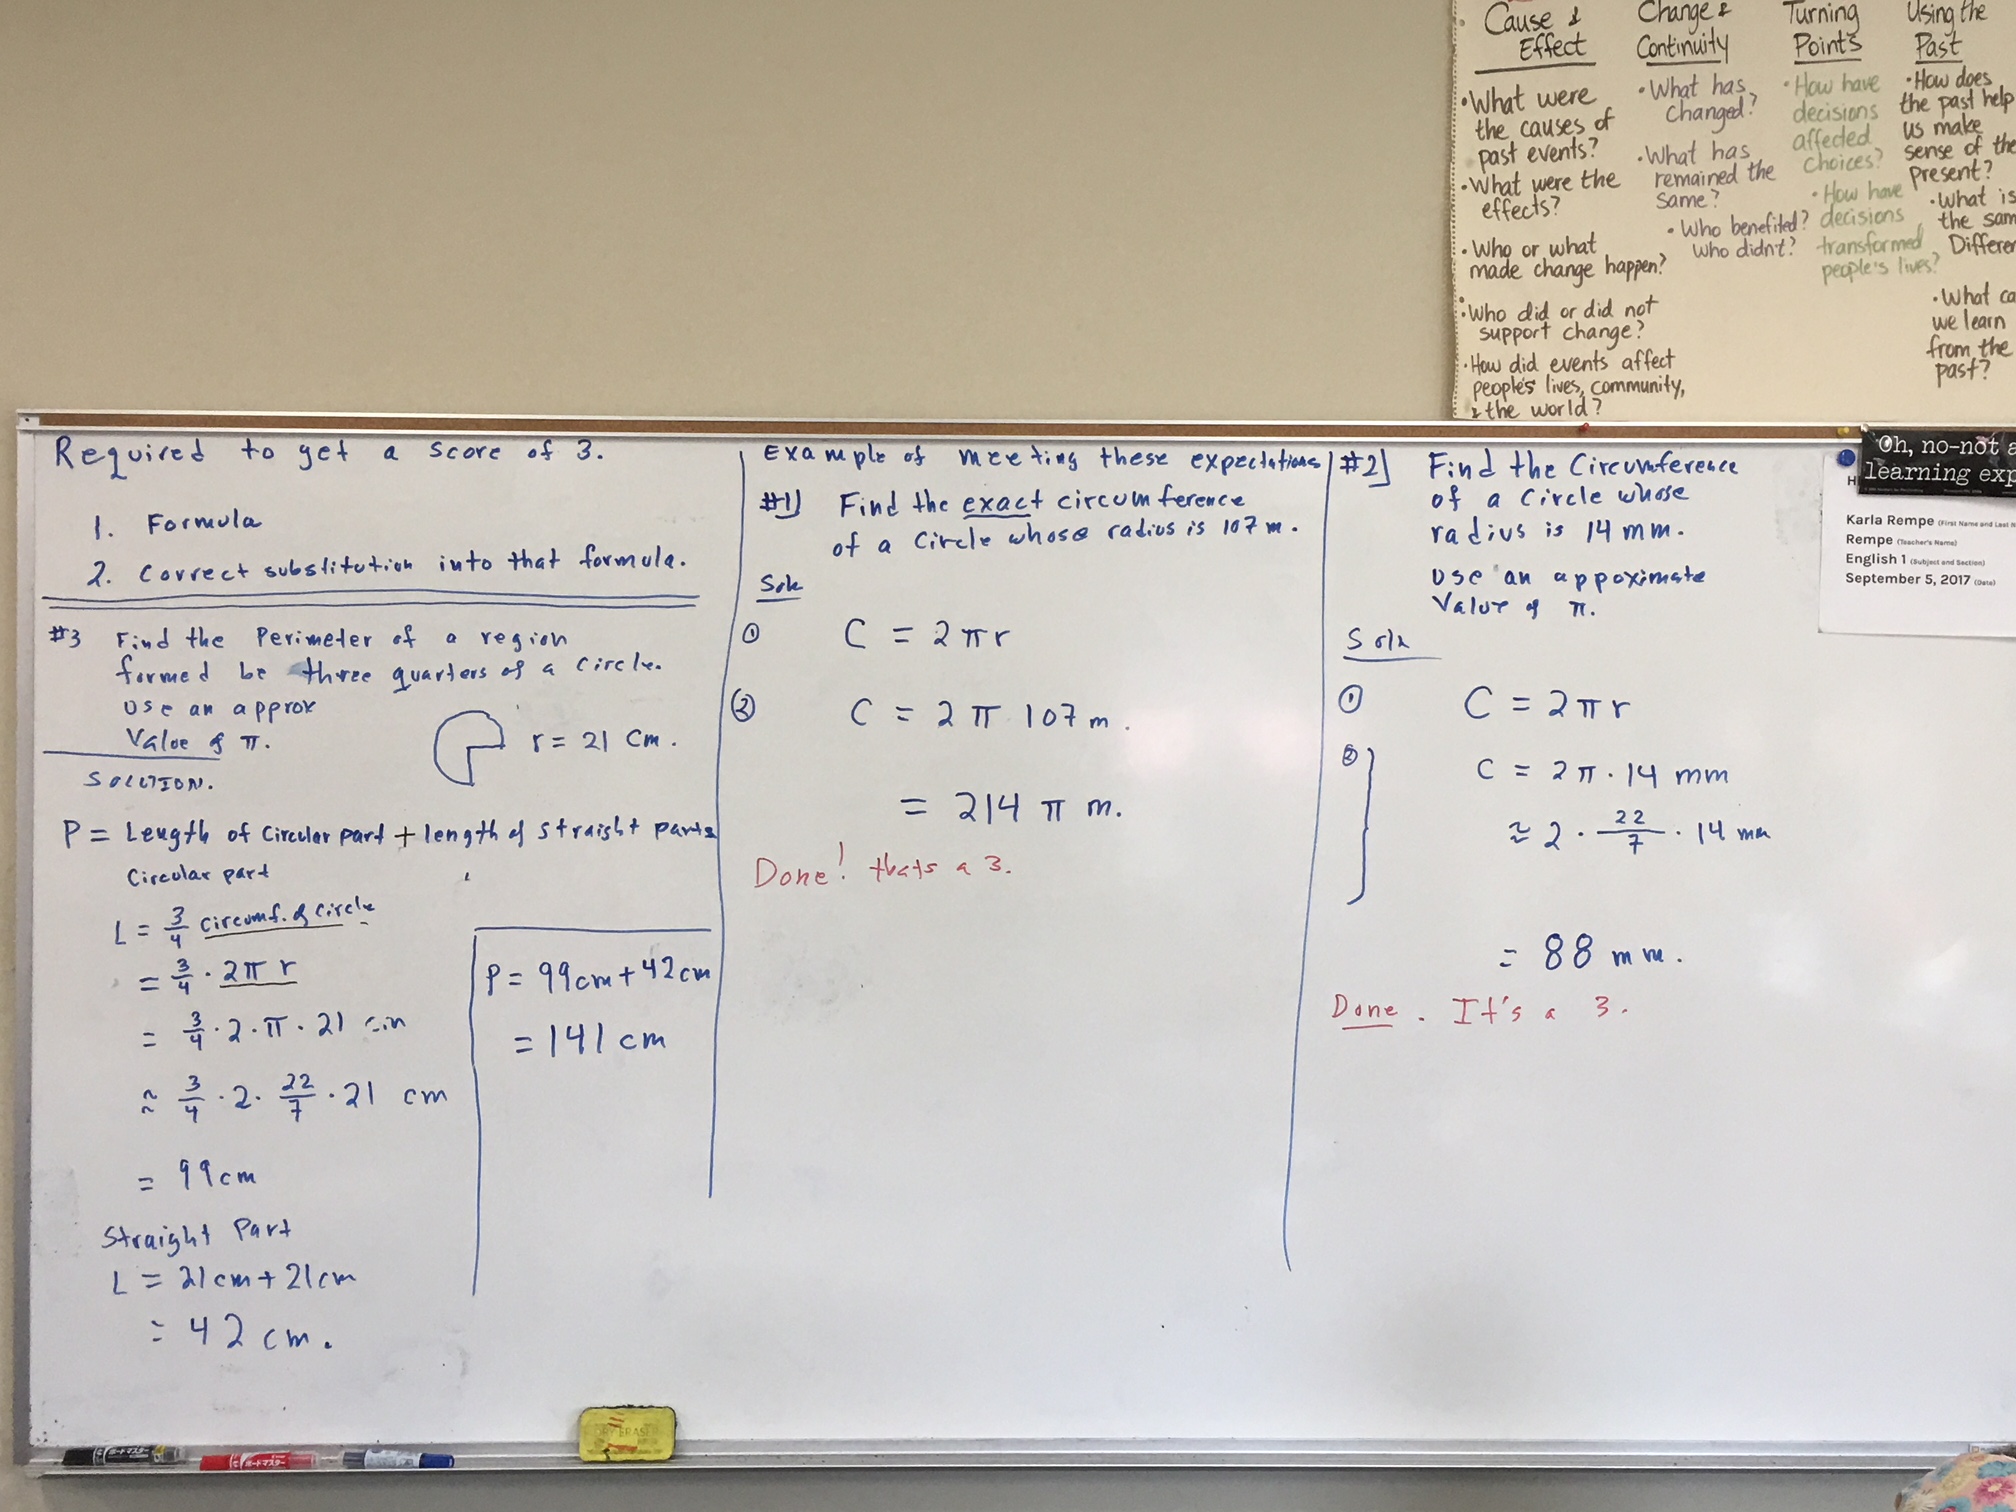 Cause &
Effect
• What were
the causes of
past events?
• What were the
effects?
• Who or what
made change happen?
• Who did or did not
support change?
• How did events affect
people's lives, community,
& the world?
Change &
Continuity
• What has
changed?
• What has
remained the
same?
• Who benefited?
Who didn't?
Turning
Points
• How have
decisions
affected
choices?
• How have
decisions
transformed
people's lives?
Using the
Past
• How does
the past help
us make
sense of the
present?
• What is
the sam
Differen
• What ca
we learn
from the
past?
Required to get a score of 3.
1. Formula
2. Correct substitution into that formula.
#3 Find the Perimeter of a region
formed be three quarters of a circle.
Use an approx
Value of π.
r = 21 cm.
SOLUTION.
P = Length of Circular part + length of straight parts
Circular part
L = 3/4 circumf. of circle
= 3/4 · 2π r
= 3/4 · 2 · π · 21 cm
≈ 3/4 · 2 · 22/7 · 21 cm
= 99 cm
Straight Part
L = 21cm + 21cm
= 42 cm.
P = 99cm + 42cm
= 141 cm
Example of meeting these expectations
#1] Find the exact circumference
of a Circle whose radius is 107 m.
Soln
① C = 2πr
② C = 2 π 107 m.
= 214 π m.
Done! thats a 3.
#2] Find the Circumference
of a Circle whose
radius is 14 mm.
Use an appoximate
Value of π.
Soln
① C = 2πr
② C = 2π · 14 mm
≈ 2 · 22/7 · 14 mm
= 88 mm.
Done. It's a 3.
Oh, no-not a
learning exp
H
Karla Rempe (First Name and Last N
Rempe (Teacher's Name)
English 1 (Subject and Section)
September 5, 2017 (Date)
ボードマスター
ボードマスター
DRY ERASE